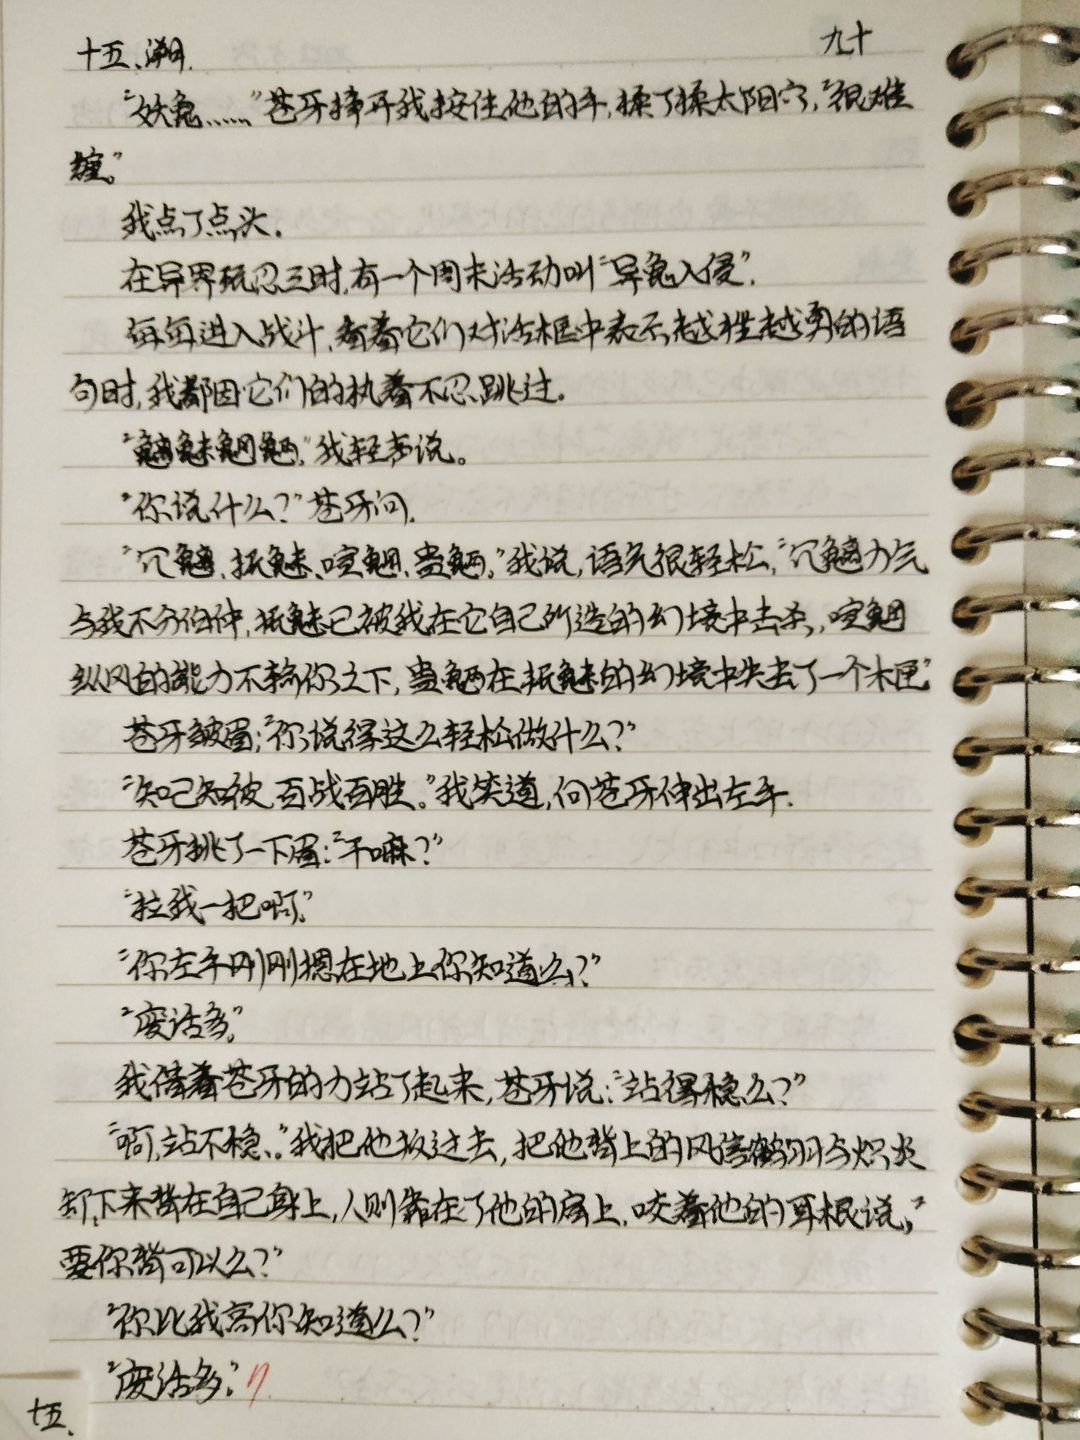 十五、溯. 九十
“妖兔……”苍牙挣开我按住他的手,揉了揉太阳穴,“很难
缠。”
我点了点头.
在异界玩忍三时,有一个周末活动叫“异兔入侵”.
每每进入战斗,看着它们对话框中表示越挫越勇的语
句时,我都因它们的执着不忍跳过.
“魑魅魍魉,”我轻声说。
“你说什么?”苍牙问.
“冗魑、抵魅、喧魍、蛊魉,”我说,语气很轻松,“冗魑力气
与我不分伯仲,抵魅已被我在它自己所造的幻境中击杀,喧魍
纵风的能力不输你之下,蛊魉在抵魅的幻境中失去了一个木匣”
苍牙皱眉:“你说得这么轻松做什么?”
“知己知彼,百战百胜。”我笑道,向苍牙伸出左手.
苍牙挑了一下眉:“干嘛?”
“拉我一把啊.”
“你左手刚刚摁在地上你知道么?”
“废话多.”
我借着苍牙的力站了起来,苍牙说:“站得稳么?”
“啊,站不稳、.”我把他扳过去,把他背上的风信鹤羽与炽炎
卸下来背在自己身上,人则靠在了他的肩上,咬着他的耳根说,“
要你背可以么?”
“你比我高你知道么?”
“废话多.”
十五、